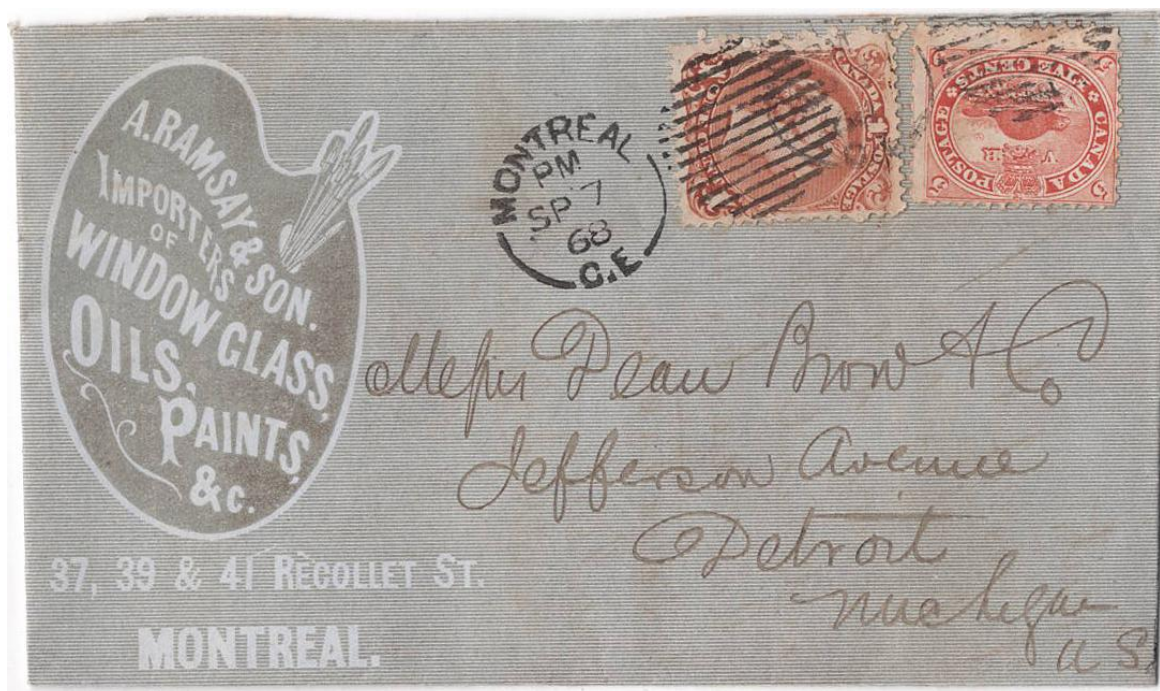 A. RAMSAY & SON.
IMPORTERS
OF
WINDOW GLASS,
OILS,
PAINTS,
&C.
37, 39 & 41 RÈCOLLET ST.
MONTREAL.
MONTREAL
PM
SP 7
68
C.E
CANADA
1
POSTAGE
CANADA POSTAGE
FIVE CENTS
5
5
5
5
V R
Messrs Dean Brow & Co
Jefferson Avenue
Detroit
Michigan
U S